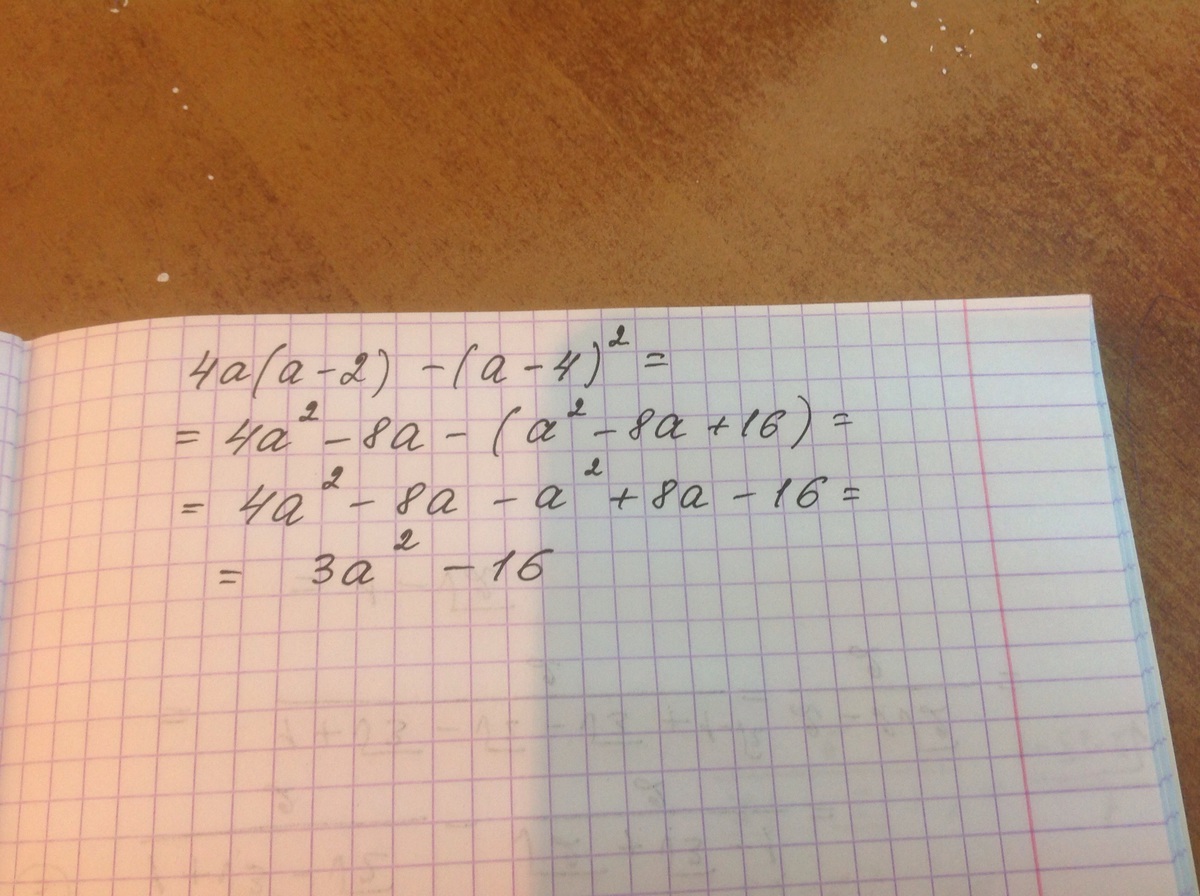 4a(a-2) -(a-4)² =
= 4a² - 8a - (a² - 8a + 16) =
= 4a² - 8a - a² + 8a - 16 =
= 3a² - 16